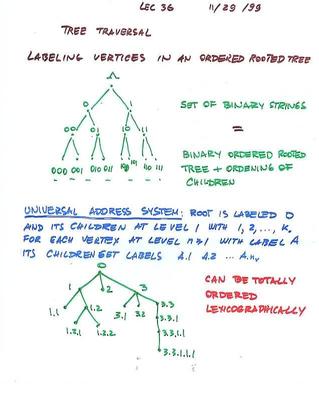 LEC 36 11/29/99
TREE TRAVERSAL
LABELING VERTICES IN AN ORDERED ROOTED TREE
Λ
0 1
00 01 10 11
000 001 010 011 100 101 110 111
SET OF BINARY STRINGS
=
BINARY ORDERED ROOTED
TREE + ORDERING OF
CHILDREN
UNIVERSAL ADDRESS SYSTEM: ROOT IS LABELED 0
AND ITS CHILDREN AT LEVEL 1 WITH 1, 2, ..., K.
FOR EACH VERTEX AT LEVEL n≥1 WITH LABEL A
ITS CHILDREN GET LABELS A.1 A.2 ...
0
1 2 3 3.3
1.1 1.2 3.1 3.2 3.3.1
1.2.1 1.2.2 3.3.1.1
3.3.1.1.1
CAN BE TOTALLY
ORDERED
LEXICOGRAPHICALLY